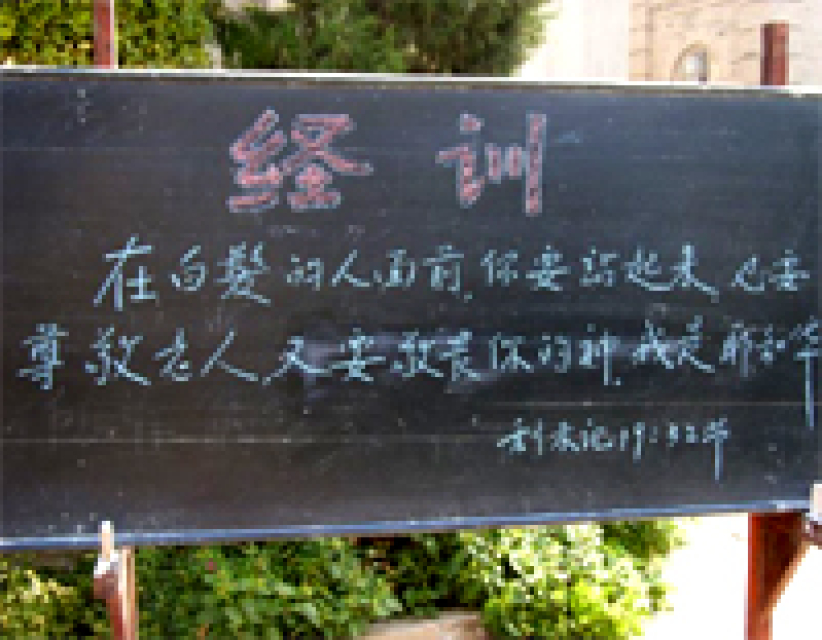 经训
在白髮的人面前,你要站起来,也要
尊敬老人,又要敬畏你的神,我是耶和华
利未记19:32节